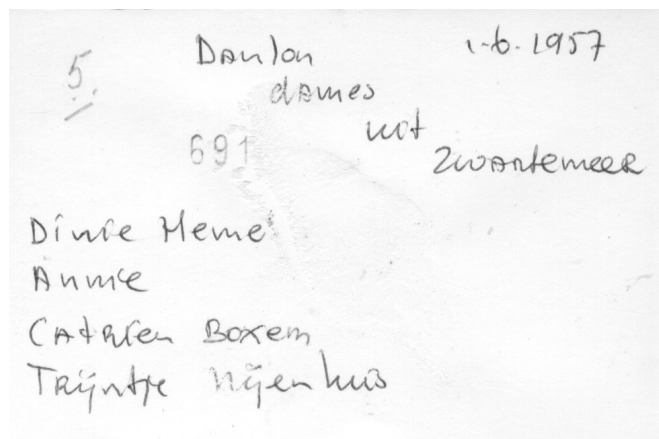 5.
Danlon
1-6-1957
dames
uit
691
Zwartemeer
Dinie Heme
Annie
Catrien Boxem
Trijntje Nijenhuis